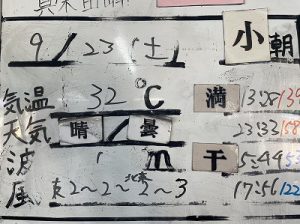 9/23(土) 小潮
気温 32℃ 満 13:28 139
天気 晴/曇 23:33 158
波 1 m 干 5:44
風 東2~2~北東2~3 17:56 122